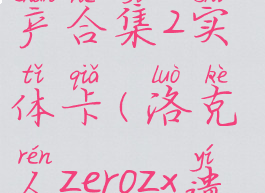 产合集2实
tǐ qiǎ luò kè
体卡(洛克
rén yí
人zerozx遗